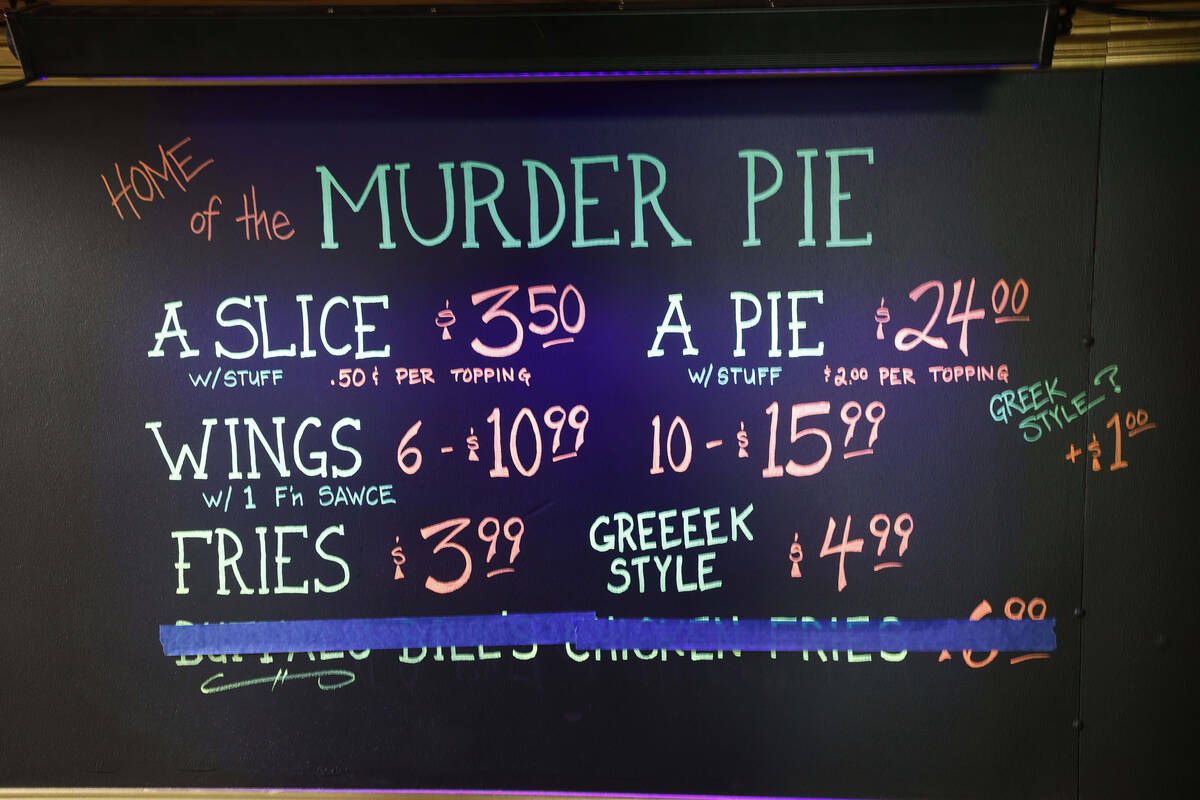 HOME
of the MURDER PIE
A SLICE $3.50 A PIE $24.00
W/STUFF .50¢ PER TOPPING W/STUFF $2.00 PER TOPPING
GREEK
STYLE?
+$1.00
WINGS 6-$10.99 10-$15.99
W/ 1 F'n SAWCE
FRIES $3.99 GREEEEK
STYLE $4.99
BUFFALO BILL'S CHICKEN FRIES $6.00